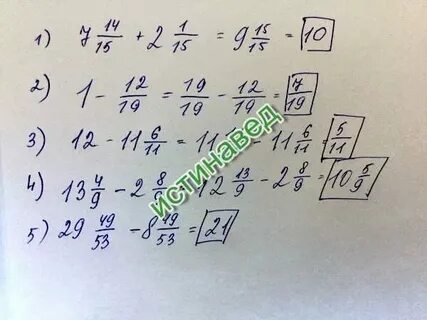 1) 7 14/15 + 2 1/15 = 9 15/15 = 10
2) 1 - 12/19 = 19/19 - 12/19 = 7/19
3) 12 - 11 6/11 = 11 - 11 6/11 = 5/11
4) 13 4/9 - 2 8/9 = 12 13/9 - 2 8/9 = 10 5/9
5) 29 49/53 - 8 49/53 = 21
ИСТИНАВЕД